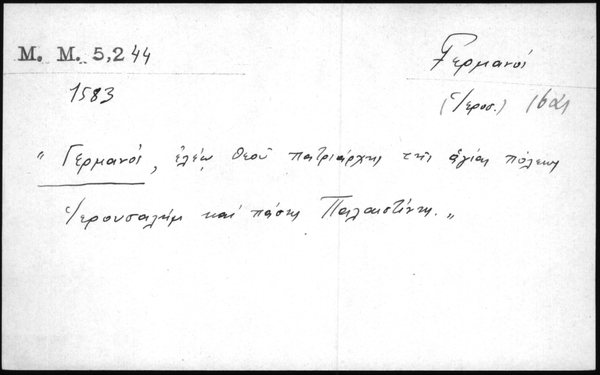 M. M. 5,244
Γερμανός
1583
(Ἱεροσ.)
"Γερμανός, ἐλέῳ Θεοῦ πατριάρχης τῆς ἁγίας πόλεως
Ἱερουσαλὴμ καὶ πάσης Παλαιστίνης."